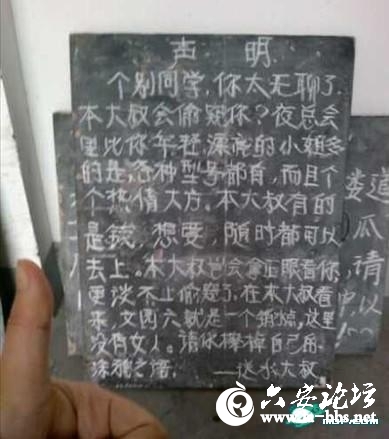 声 明
个别同学，你太无聊了.
本大叔会偷窥你？夜总会
里比你年轻漂亮的小姐多
的是，各种型号都有，而且个
个热情大方。本大叔有的
是钱，想要，随时都可以
去上。本大叔岂会拿正眼看你，
更谈不上偷窥了，在本大叔看
来，文四六就是一个锅点，这里
没有女人。请你擦掉自己的
涂鸦之语.
——送水大叔
娄道
瓜
请
以
六安论坛
bbs.net